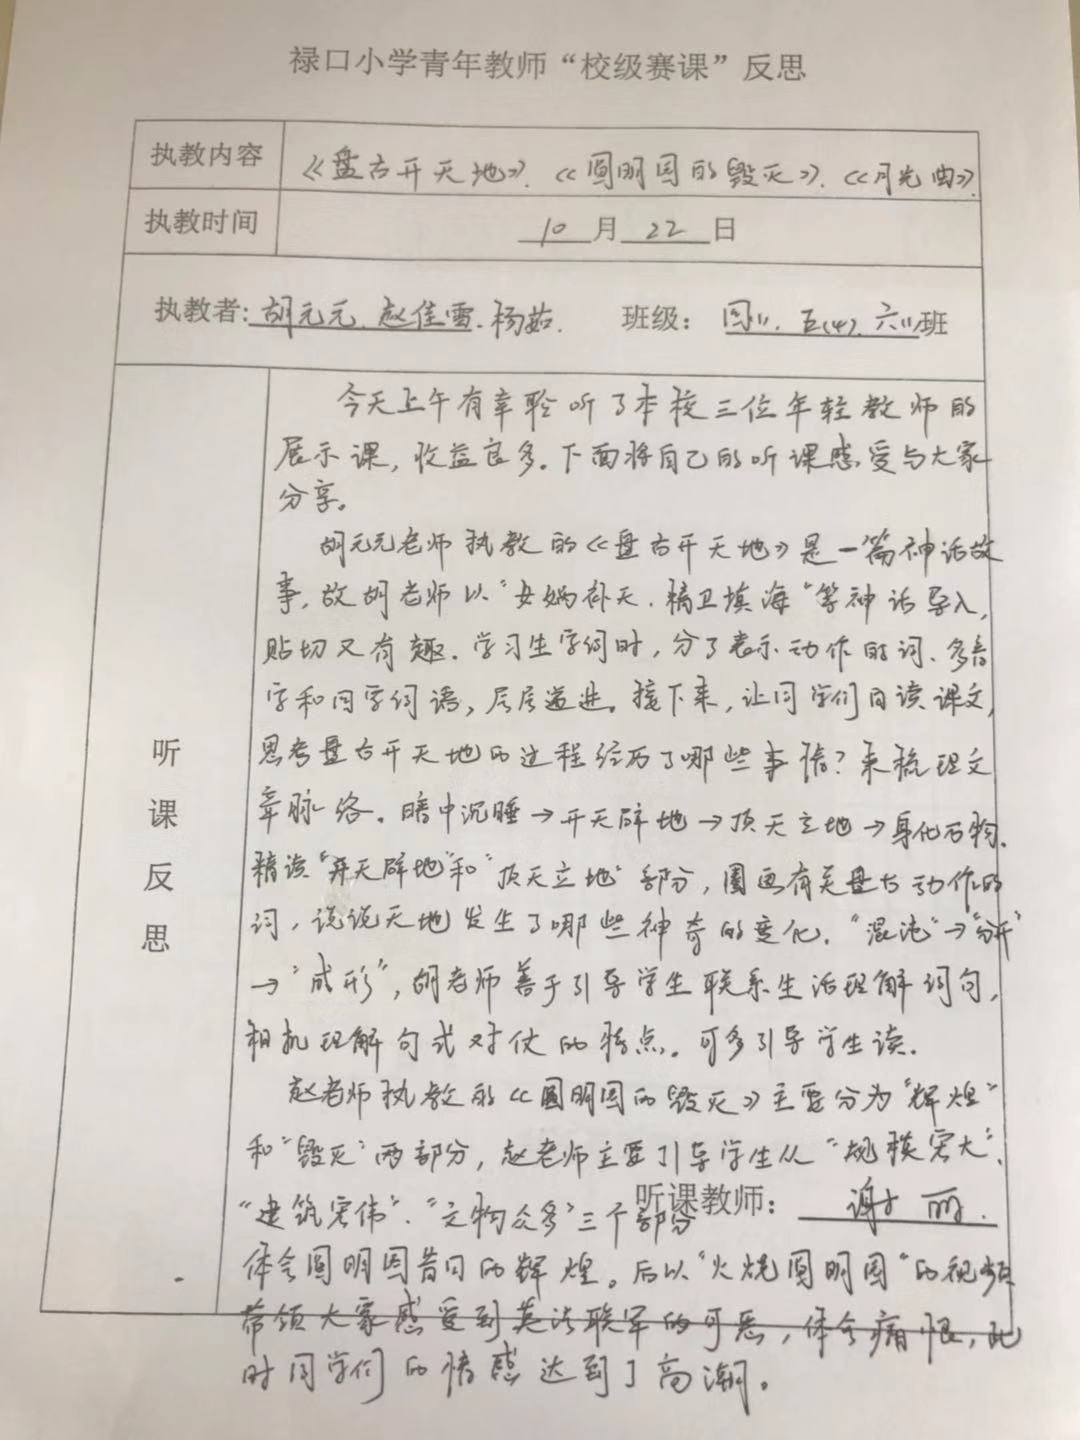 禄口小学青年教师“校级赛课”反思
执教内容 《盘古开天地》、《圆明园的毁灭》、《月光曲》
执教时间 10月22日
执教者:胡元元、赵佳雪、杨茹. 班级：四(1)、五(4)、六(1)班
听课反思
今天上午有幸聆听了本校三位年轻教师的
展示课，收益良多。下面将自己的听课感受与大家
分享。
胡元元老师执教的《盘古开天地》是一篇神话故
事，故胡老师以“女娲补天、精卫填海”等神话导入，
贴切又有趣。学习生字词时，分了表示动作的词、多音
字和四字词语，层层递进。接下来，让同学们自读课文，
思考盘古开天地的过程经历了哪些事情？来梳理文
章脉络。暗中沉睡→开天辟地→顶天立地→身化万物。
精读“开天辟地”和“顶天立地”部分，圈画有关盘古动作的
词，说说天地发生了哪些神奇的变化。“混沌”→“分开”
→“成形”，胡老师善于引导学生联系生活理解词句，
相机理解句式对仗的特点。可多引导学生读。
赵老师执教的《圆明园的毁灭》主要分为“辉煌”
和“毁灭”两部分，赵老师主要引导学生从“规模宏大”、
“建筑宏伟”、“文物众多”三个部分
听课教师：谢丽.
体会圆明园昔日的辉煌。后以“火烧圆明园”的视频
带领大家感受到英法联军的可恶，体会痛恨，此
时同学们的情感达到了高潮。